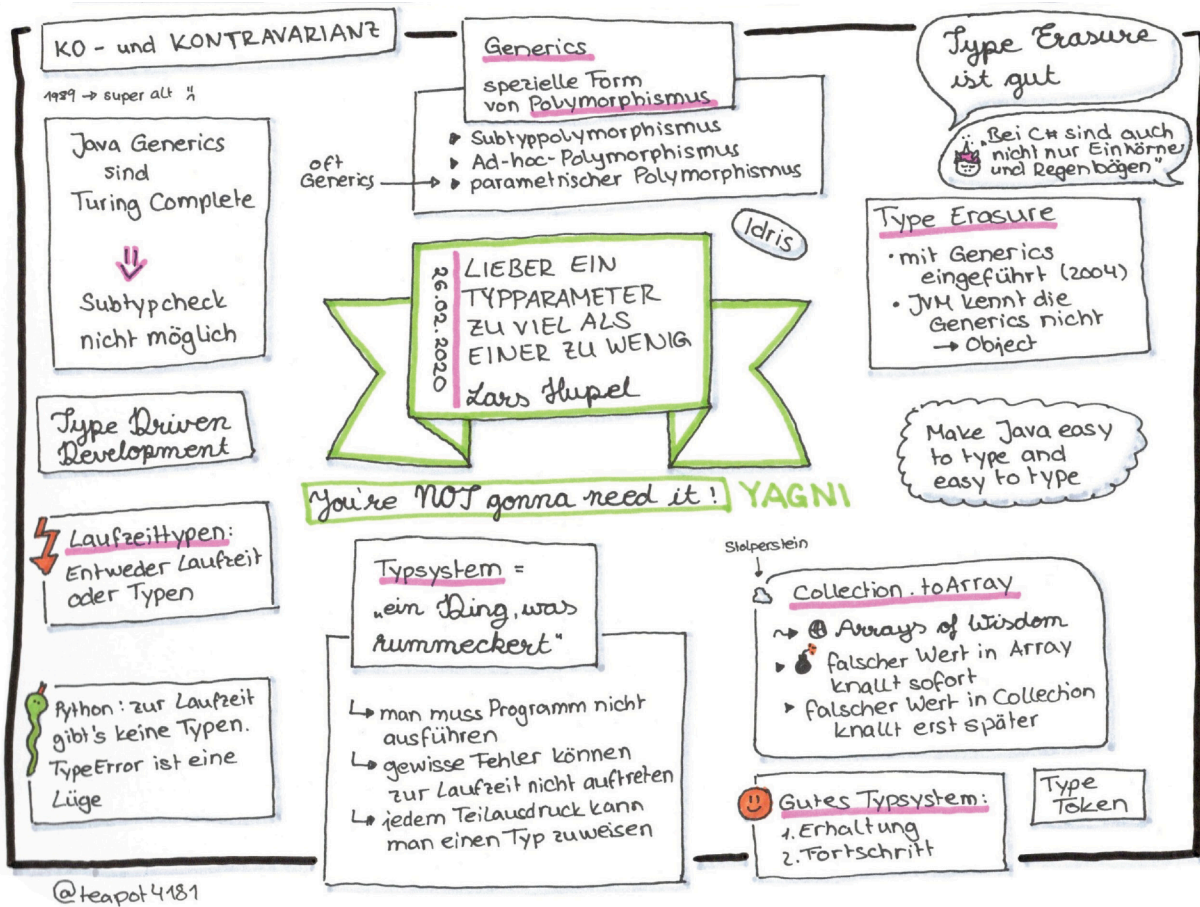 KO - und KONTRAVARIANZ
1989 → super alt
Java Generics
sind
Turing Complete
Subtypcheck
nicht möglich
Type Driven
Development
Laufzeittypen:
Entweder Laufzeit
oder Typen
Python: zur Laufzeit
gibt's keine Typen.
TypeError ist eine
Lüge
@teapot4181
Generics
spezielle Form
von Polymorphismus
▸ Subtyppolymorphismus
▸ Ad-hoc-Polymorphismus
▸ parametrischer Polymorphismus
oft
Generics →
Idris
26.02.2020
LIEBER EIN
TYPPARAMETER
ZU VIEL ALS
EINER ZU WENIG
Lars Hupel
You're NOT gonna need it! YAGNI
Typsystem =
„ein Ding, was
rummeckert"
↳ man muss Programm nicht
ausführen
↳ gewisse Fehler können
zur Laufzeit nicht auftreten
↳ jedem Teilausdruck kann
man einen Typ zuweisen
Type Erasure
ist gut
„Bei C# sind auch
nicht nur Einhörner
und Regenbögen"
Type Erasure
• mit Generics
eingeführt (2004)
• JVM kennt die
Generics nicht
→ Object
Make Java easy
to type and
easy to type
Stolperstein
Collection.toArray
Arrays of Wisdom
▸ falscher Wert in Array
knallt sofort
▸ falscher Wert in Collection
knallt erst später
Gutes Typsystem:
1. Erhaltung
2. Fortschritt
Type
Token